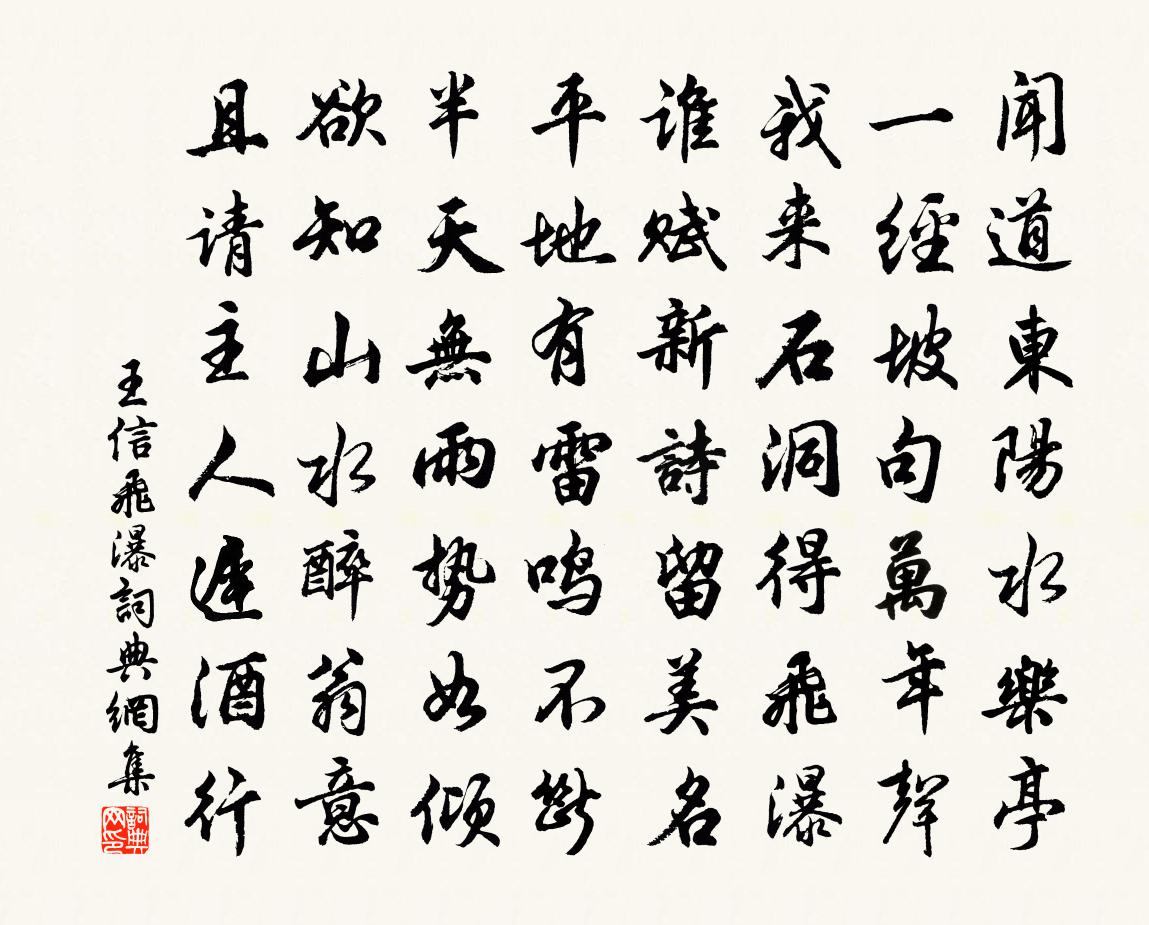 闻道東陽水樂亭
一經坡句萬年聲
我来石洞得飛瀑
谁赋新詩留美名
平地有雷鸣不斷
半天無雨势如倾
欲知山水醉翁意
且请主人遲酒行
王信飛瀑詞典網集
詞典网印